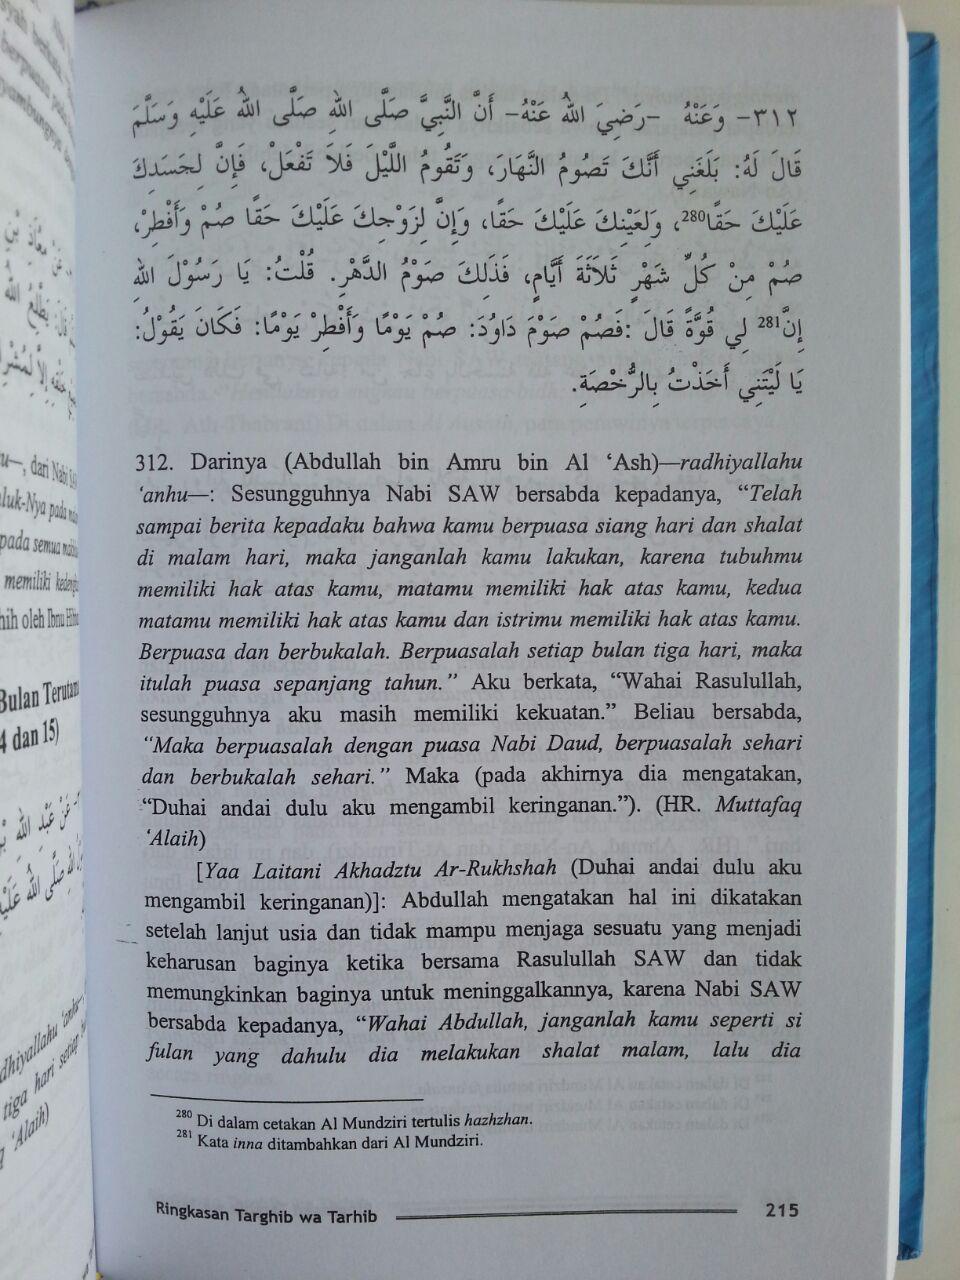 ٣١٢- وَعَنْهُ -رَضِيَ اللهُ عَنْهُ- أَنَّ النَّبِيَّ صَلَّى اللهِ صَلَّى اللهُ عَلَيْهِ وَسَلَّمَ
قَالَ لَهُ: بَلَغَنِي أَنَّكَ تَصُومُ النَّهَارَ، وَتَقُومُ اللَّيْلَ فَلاَ تَفْعَلْ، فَإِنَّ لِجَسَدِكَ
عَلَيْكَ حَقًّا280، وَلِعَيْنِكَ عَلَيْكَ حَقًا، وَإِنَّ لِزَوْجِكَ عَلَيْكَ حَقًا صُمْ وَأَفْطِرْ،
صُمْ مِنْ كُلِّ شَهْرٍ ثَلاَثَةَ أَيَّامٍ، فَذَلِكَ صَوْمُ الدَّهْرِ. قُلْتُ: يَا رَسُوْلَ اللهِ
إِنَّ281 لِي قُوَّةً قَالَ :فَصُمْ صَوْمَ دَاوُدَ: صُمْ يَوْمًا وَأَفْطِرْ يَوْمًا: فَكَانَ يَقُوْلُ:
يَا لَيْتَنِي أَخَذْتُ بِالرُّخْصَةِ.
312. Darinya (Abdullah bin Amru bin Al ‘Ash)—radhiyallahu
‘anhu—: Sesungguhnya Nabi SAW bersabda kepadanya, “Telah
sampai berita kepadaku bahwa kamu berpuasa siang hari dan shalat
di malam hari, maka janganlah kamu lakukan, karena tubuhmu
memiliki hak atas kamu, matamu memiliki hak atas kamu, kedua
matamu memiliki hak atas kamu dan istrimu memiliki hak atas kamu.
Berpuasa dan berbukalah. Berpuasalah setiap bulan tiga hari, maka
itulah puasa sepanjang tahun.” Aku berkata, “Wahai Rasulullah,
sesungguhnya aku masih memiliki kekuatan.” Beliau bersabda,
“Maka berpuasalah dengan puasa Nabi Daud, berpuasalah sehari
dan berbukalah sehari.” Maka (pada akhirnya dia mengatakan,
“Duhai andai dulu aku mengambil keringanan.”). (HR. Muttafaq
‘Alaih)
[Yaa Laitani Akhadztu Ar-Rukhshah (Duhai andai dulu aku
mengambil keringanan)]: Abdullah mengatakan hal ini dikatakan
setelah lanjut usia dan tidak mampu menjaga sesuatu yang menjadi
keharusan baginya ketika bersama Rasulullah SAW dan tidak
memungkinkan baginya untuk meninggalkannya, karena Nabi SAW
bersabda kepadanya, “Wahai Abdullah, janganlah kamu seperti si
fulan yang dahulu dia melakukan shalat malam, lalu dia
280 Di dalam cetakan Al Mundziri tertulis hazhzhan.
281 Kata inna ditambahkan dari Al Mundziri.
Ringkasan Targhib wa Tarhib 215